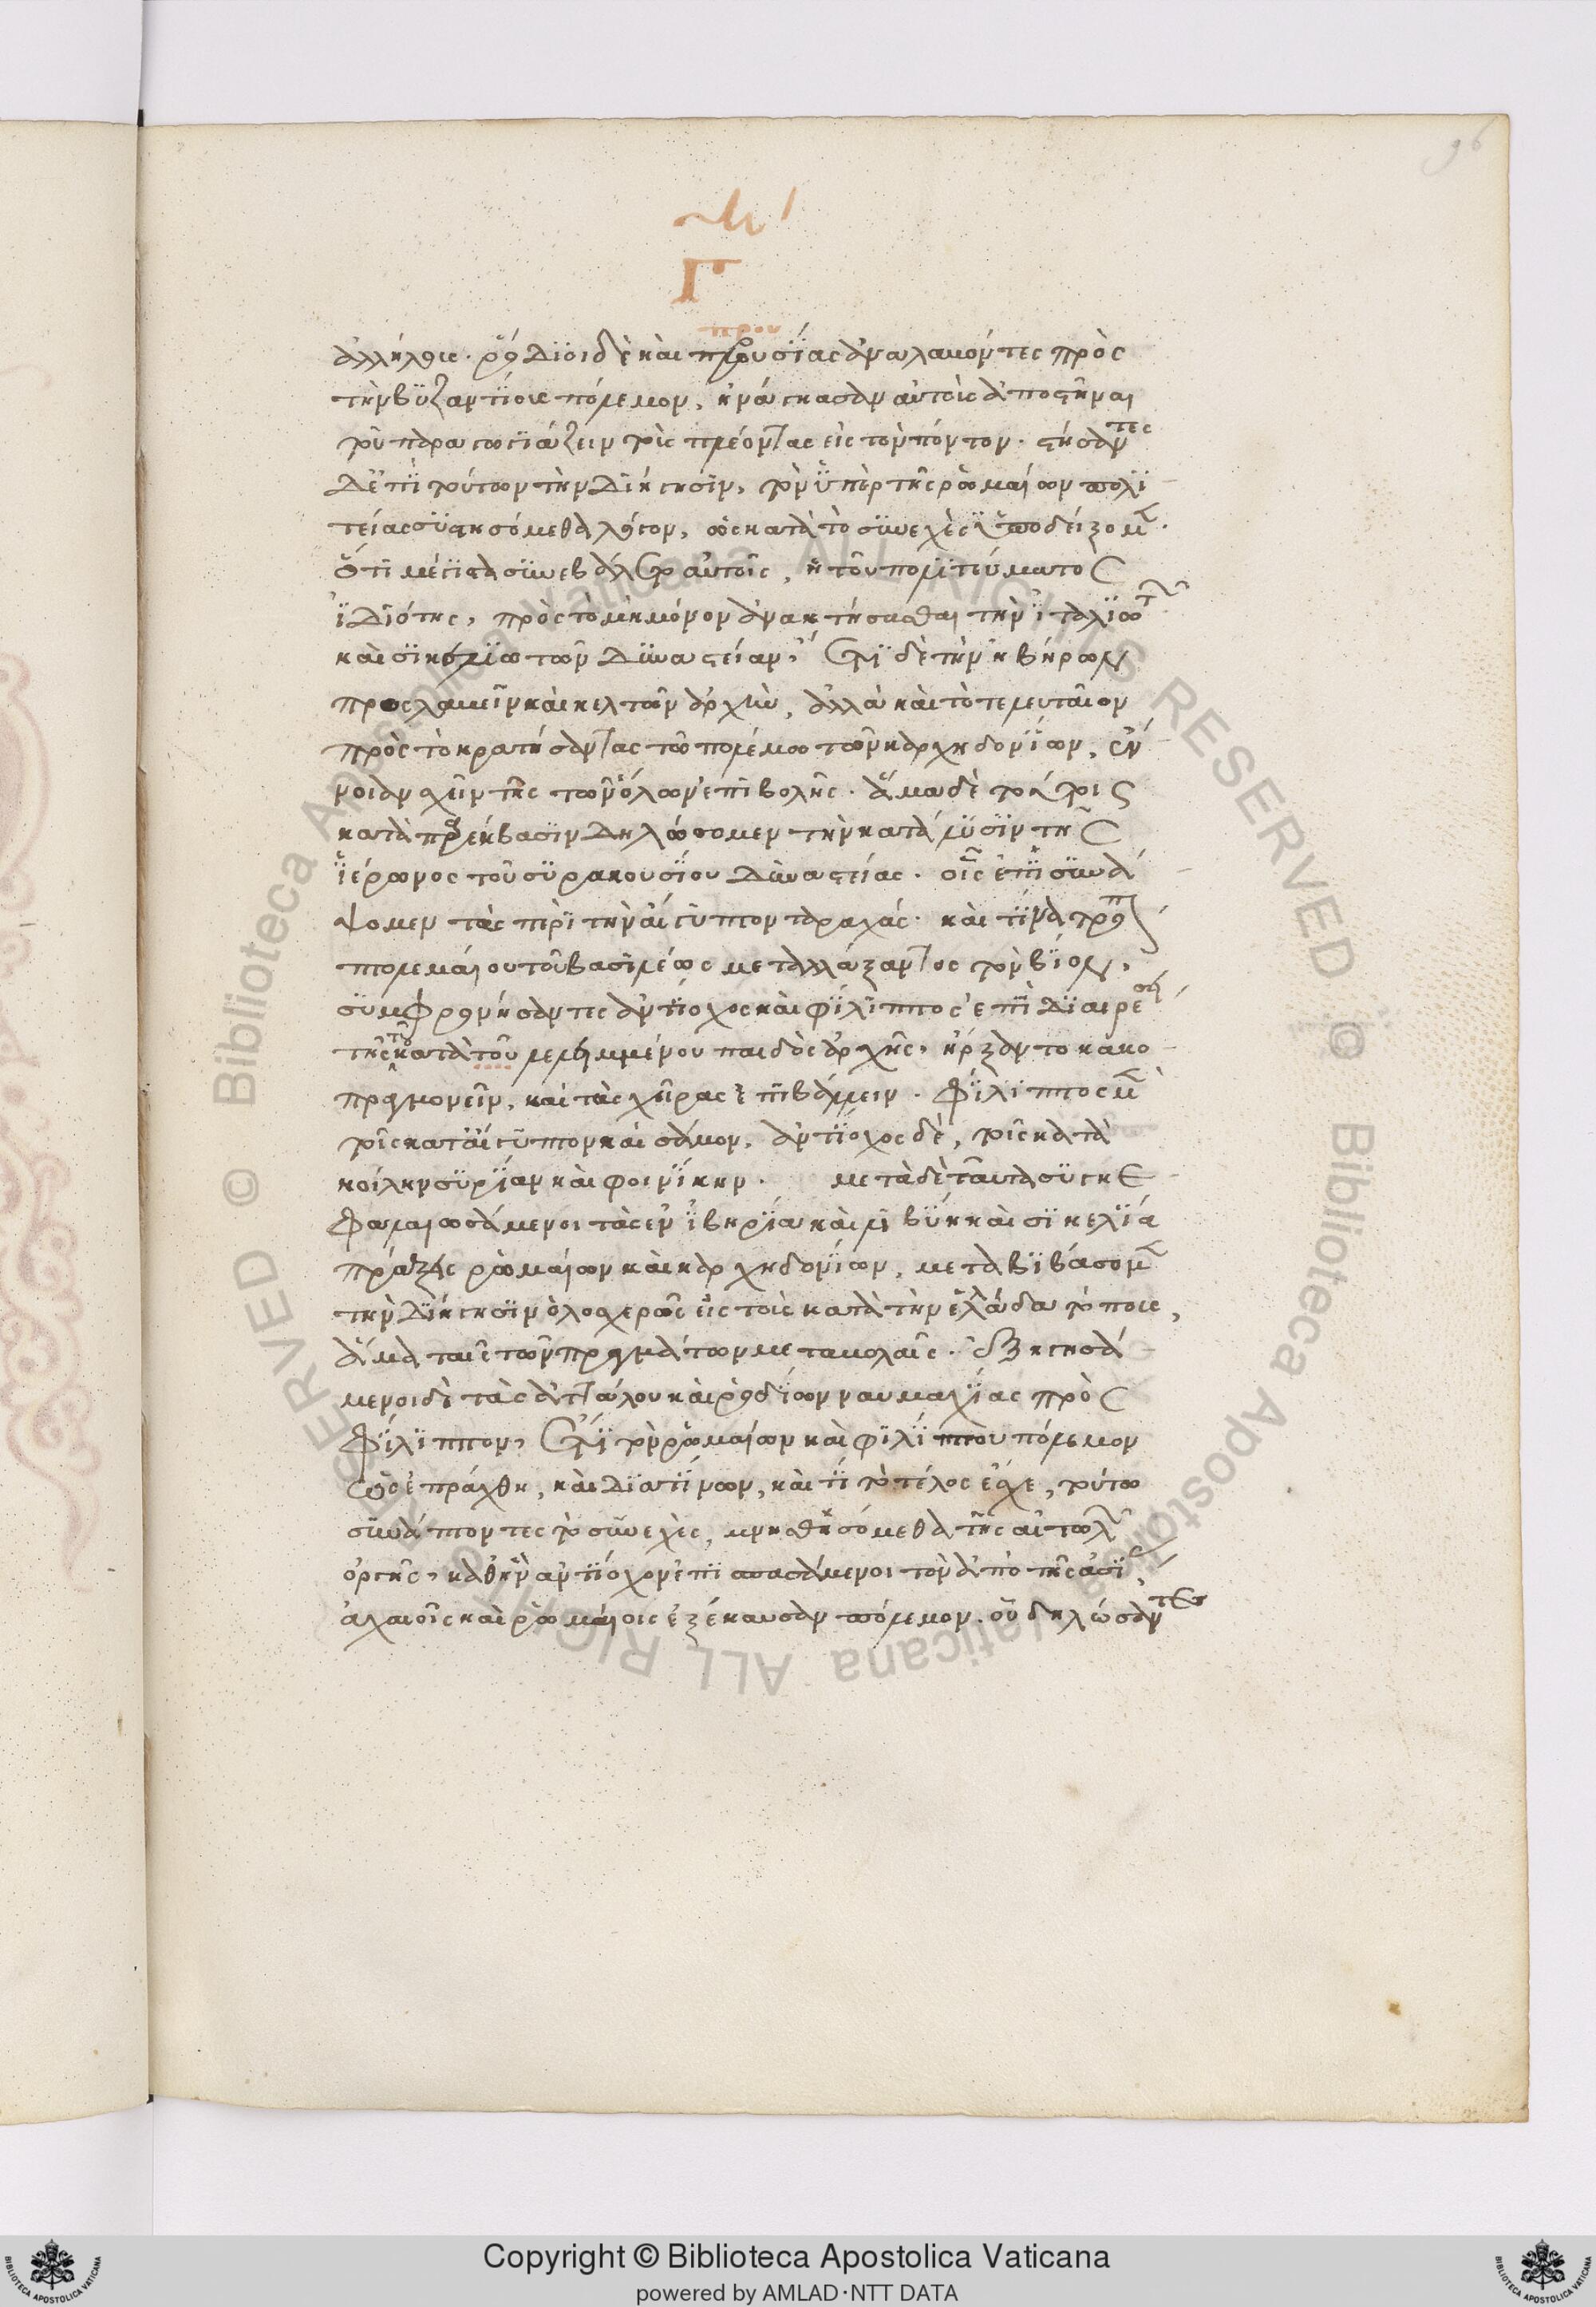 96
Γ
πρου
ἀλλήλοις. ῥόδιοι δὲ καὶ προυσίας ἀναλαβόντες πρὸς
τὴν βυζαντίοις πόλεμον, ἠνάγκασαν αὐτοὺς ἀποστῆναι
τοῦ παραγωγιάζειν τοὺς πλέοντας εἰς τὸν πόντον. στήσαντες
δ' ἐπὶ τούτων τὴν διήγησιν, τὸν ὑπὲρ τῆς ῥωμαίων πολι
τείας συστησόμεθα λόγον, ὡς κατὰ τὸ συνεχὲς ὑποδείξομεν.
ὅτι μέγιστα συνεβάλετο αὐτοῖς, ἡ τοῦ πολιτεύματος
ἰδιότης, πρὸς τὸ μὴ μόνον ἀνακτήσασθαι τὴν ἰταλιωτῶν
καὶ σικελιωτῶν δυναστείαν, ἔτι δὲ τὴν ἠβήρων
προσλαβεῖν καὶ κελτῶν ἀρχὴν, ἀλλὰ καὶ τὸ τελευταῖον
πρὸς τὸ κρατήσαντας τῷ πολέμῳ τῶν καρχηδονίων, ἔν
νοιαν σχεῖν τῆς τῶν ὅλων ἐπιβολῆς. ἅμα δὲ τούτοις
κατὰ παρέκβασιν δηλώσομεν τὴν κατάλυσιν τῆς
ἱέρωνος τοῦ συρακουσίου δυναστείας. οἷς ἐπισυνά
ψομεν τὰς περὶ τὴν αἴγυπτον ταραχάς. καὶ τίνα τρόπον
πτολεμαίου τοῦ βασιλέως μεταλλάξαντος τὸν βίον,
συμφρονήσαντες ἀντίοχος καὶ φίλιππος ἐπὶ διαιρέσει
τῆς τοῦ κατὰ τοῦ λελειμμένου παιδὸς ἀρχῆς, ἤρξαντο κακο
πραγμονεῖν, καὶ τὰς χεῖρας ἐπιβάλλειν. φίλιππος μὲν
τοῖς κατ' αἴγυπτον καὶ σάμον, ἀντίοχος δὲ, τοῖς κατὰ
κοίλην συρίαν καὶ φοινίκην. μετὰ δὲ ταῦτα συγκε
φαλαιωσάμενοι τὰς ἐν ἰβηρία καὶ λιβύη καὶ σικελία
πράξεις ῥωμαίων καὶ καρχηδονίων, μεταβιβάσομεν
τὴν διήγησιν ὁλοσχερῶς εἰς τοὺς κατὰ τὴν ἑλλάδα τόπους,
ἅμα ταῖς τῶν πραγμάτων μεταβολαῖς. ἐξηγησά
μενοι δὲ τὰς ἀττάλου καὶ ῥοδίων ναυμαχίας πρὸς
φίλιππον, ἔτι τὸν ῥωμαίων καὶ φιλίππου πόλεμον
ὡς ἐπράχθη, καὶ διὰ τίνων, καὶ τί τὸ τέλος ἔσχε, τούτω
συνάπτοντες τὸ συνεχὲς, μνησθησόμεθα τῆς αἰτωλῶν
ὀργῆς, καθ' ἣν ἀντίοχον ἐπισπασάμενοι τὸν ἀπὸ τῆς ἀσίας
ἀχαιοῖς καὶ ῥωμαίοις ἐξέκαυσαν πόλεμον. οὗ δηλώσαντες
Copyright © Biblioteca Apostolica Vaticana
powered by AMLAD·NTT DATA